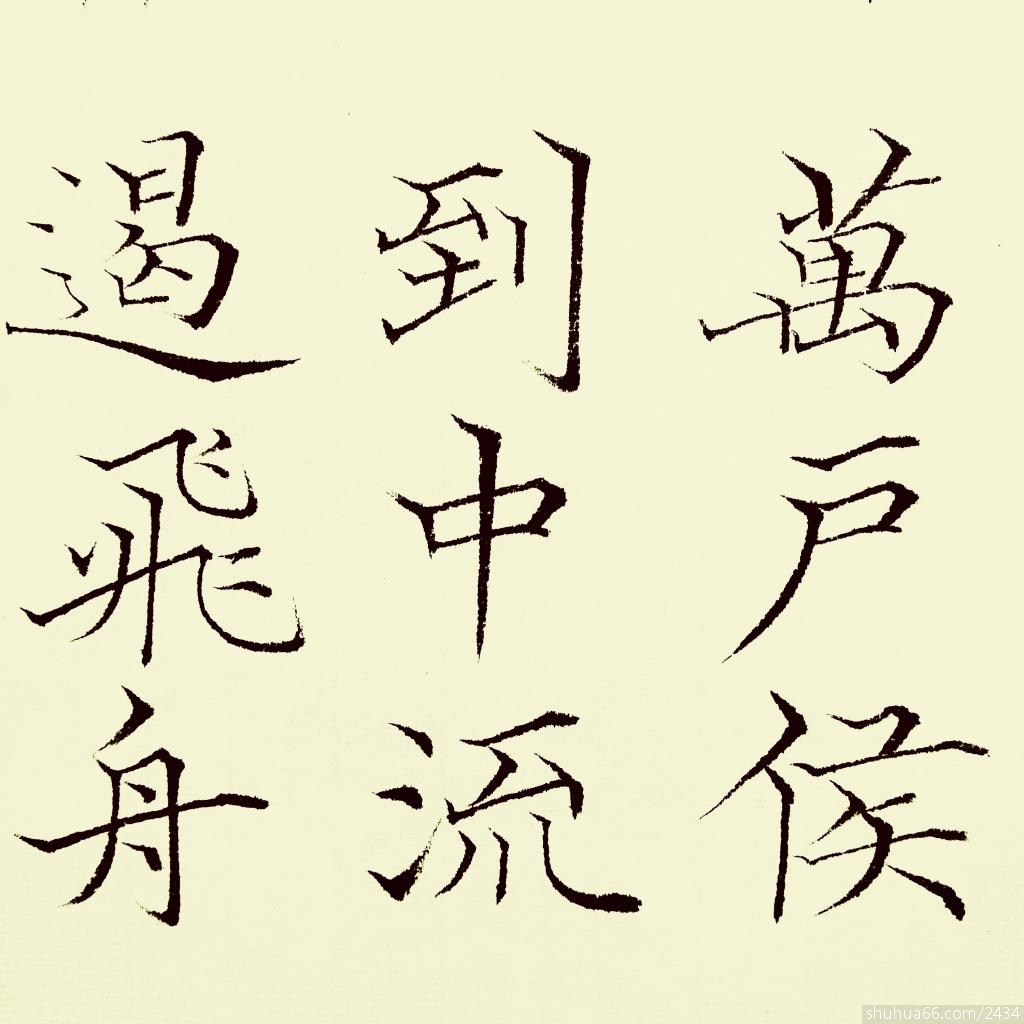 萬戶侯
到中流
遏飛舟
shuhua66.com/2434